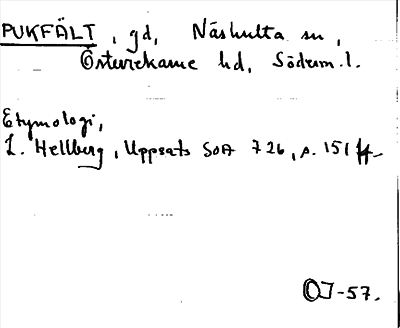 PUKFÄLT, gd, Näshulta sn,
Österrekarne hd, Söderm.l.
Etymologi,
L. Hellberg, Uppsats SOA 726, s. 151 ff
OJ-57.